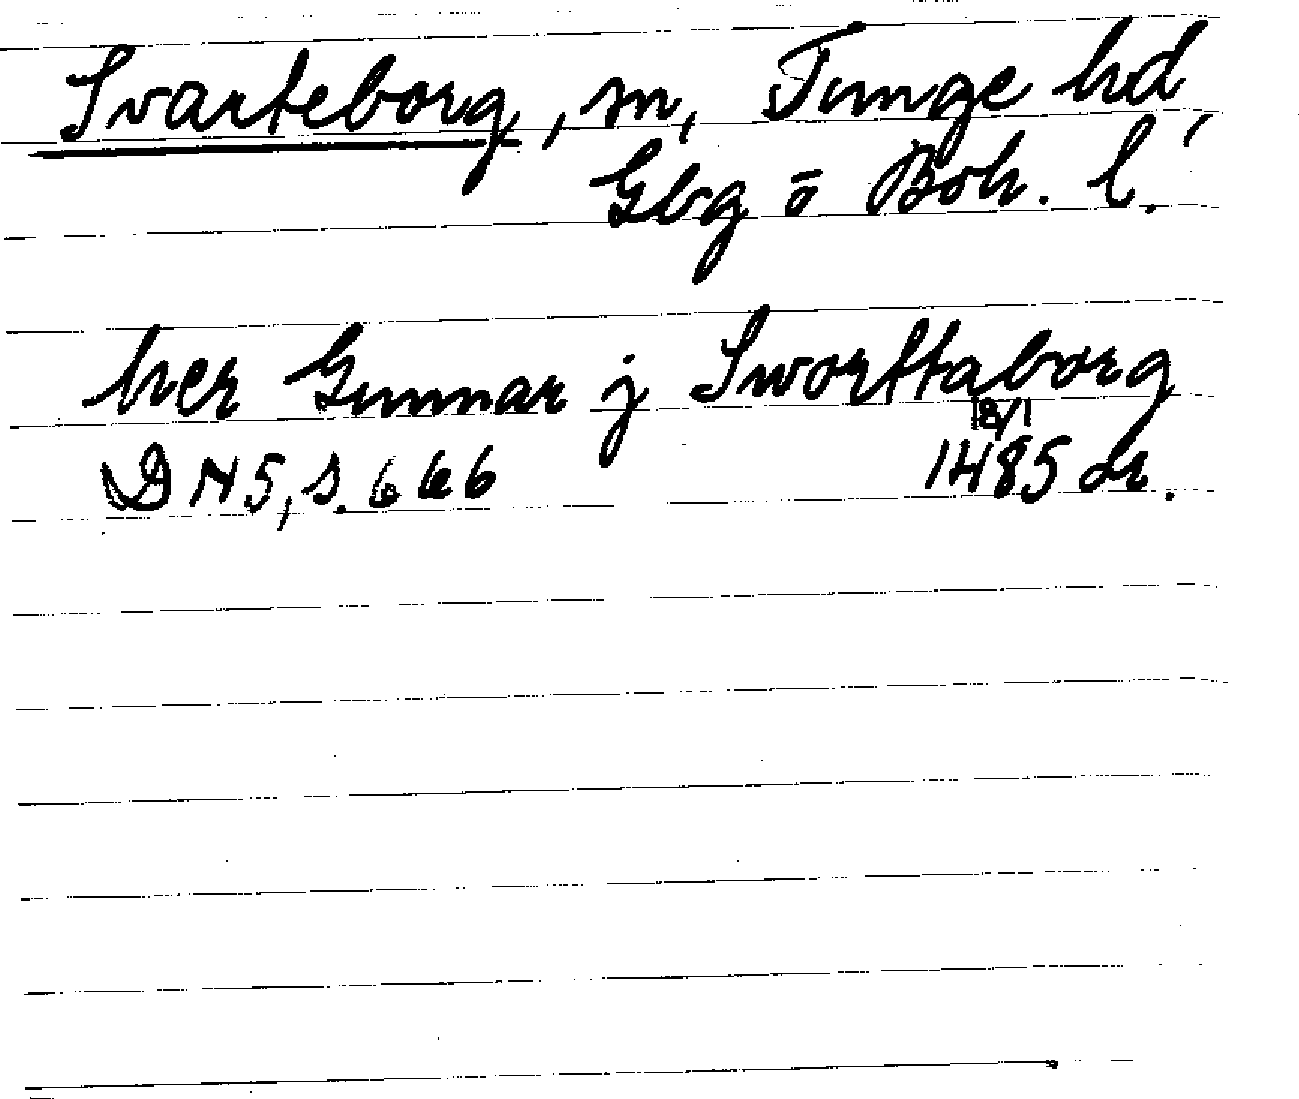 Svarteborg, sn, Tunge hd,
Gbg o Boh. l.
her Gunnar j Sworttaborg
18/1
DN 5, s. 666 1485 or.